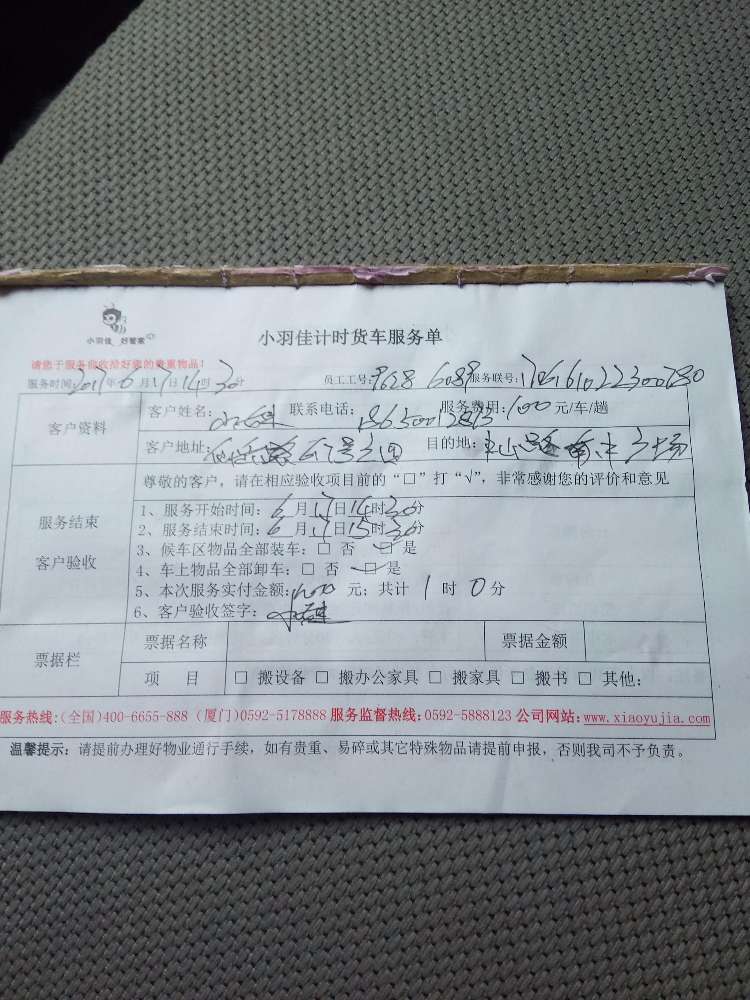 小羽佳 好管家
小羽佳计时货车服务单
请您于服务前收拾好您的贵重物品！
服务时间：2017年6月17日14时30分 员工工号：9628 6089 服务联号：
客户资料
客户姓名： 联系电话： 服务费用：100元/车/趟
客户地址： 目的地：
服务结束
客户验收
尊敬的客户，请在相应验收项目前的“□”打“√”，非常感谢您的评价和意见
1、服务开始时间：6月17日14时30分
2、服务结束时间：6月17日15时30分
3、候车区物品全部装车：□ 否 □ 是
4、车上物品全部卸车：□ 否 □ 是
5、本次服务实付金额： 元；共计 1 时 0 分
6、客户验收签字：
票据栏
票据名称 票据金额
项 目 □ 搬设备 □ 搬办公家具 □ 搬家具 □ 搬书 □ 其他：
服务热线：(全国)400-6655-888 (厦门)0592-5178888 服务监督热线：0592-5888123 公司网站：www.xiaoyujia.com
温馨提示：请提前办理好物业通行手续，如有贵重、易碎或其它特殊物品请提前申报，否则我司不予负责。